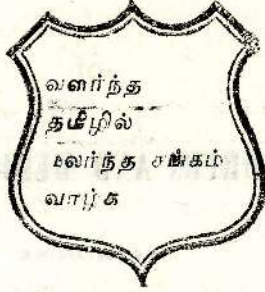 வளர்ந்த
தமிழில்
மலர்ந்த சங்கம்
வாழ்க